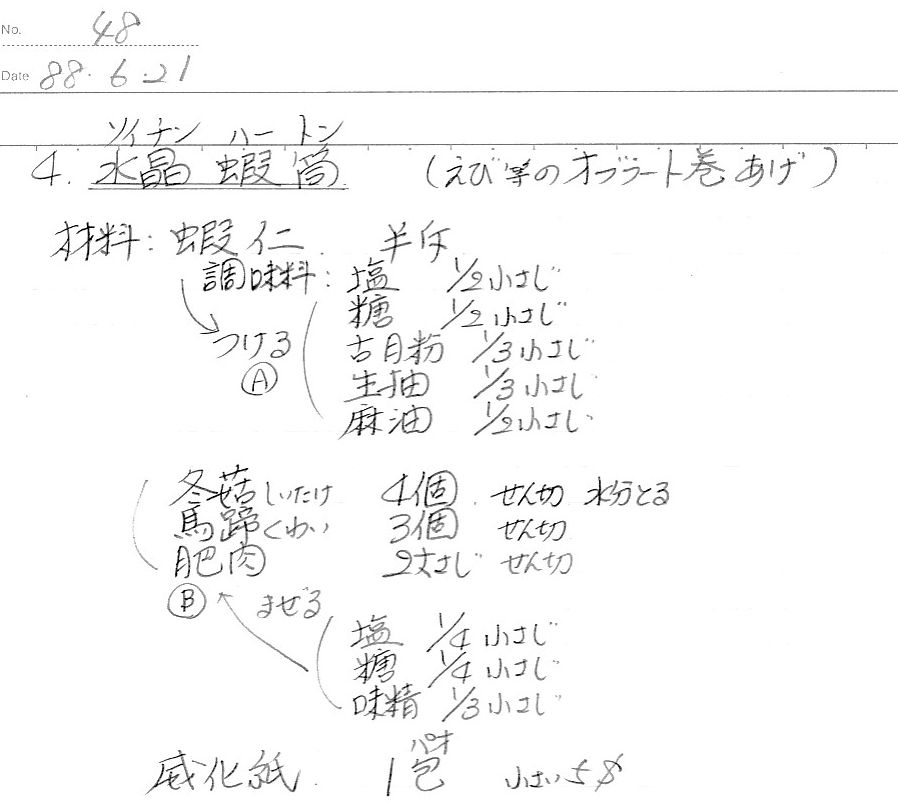 No. 48
Date 88.6.21
ソイナン ハートン
4. 水晶 蝦筒 (えび等のオブラート巻あげ)
材料: 蝦仁 半斤
調味料: 塩 1/2小さじ
糖 1/2小さじ
つける 古月粉 1/3小さじ
Ⓐ 生抽 1/3小さじ
麻油 1/2小さじ
冬菇しいたけ 4個 せん切 水分とる
馬蹄くわい 3個 せん切
肥肉 2大さじ せん切
Ⓑ まぜる
塩 1/4小さじ
糖 1/4小さじ
味精 1/3小さじ
パオ
威化紙 1包 小さい5$